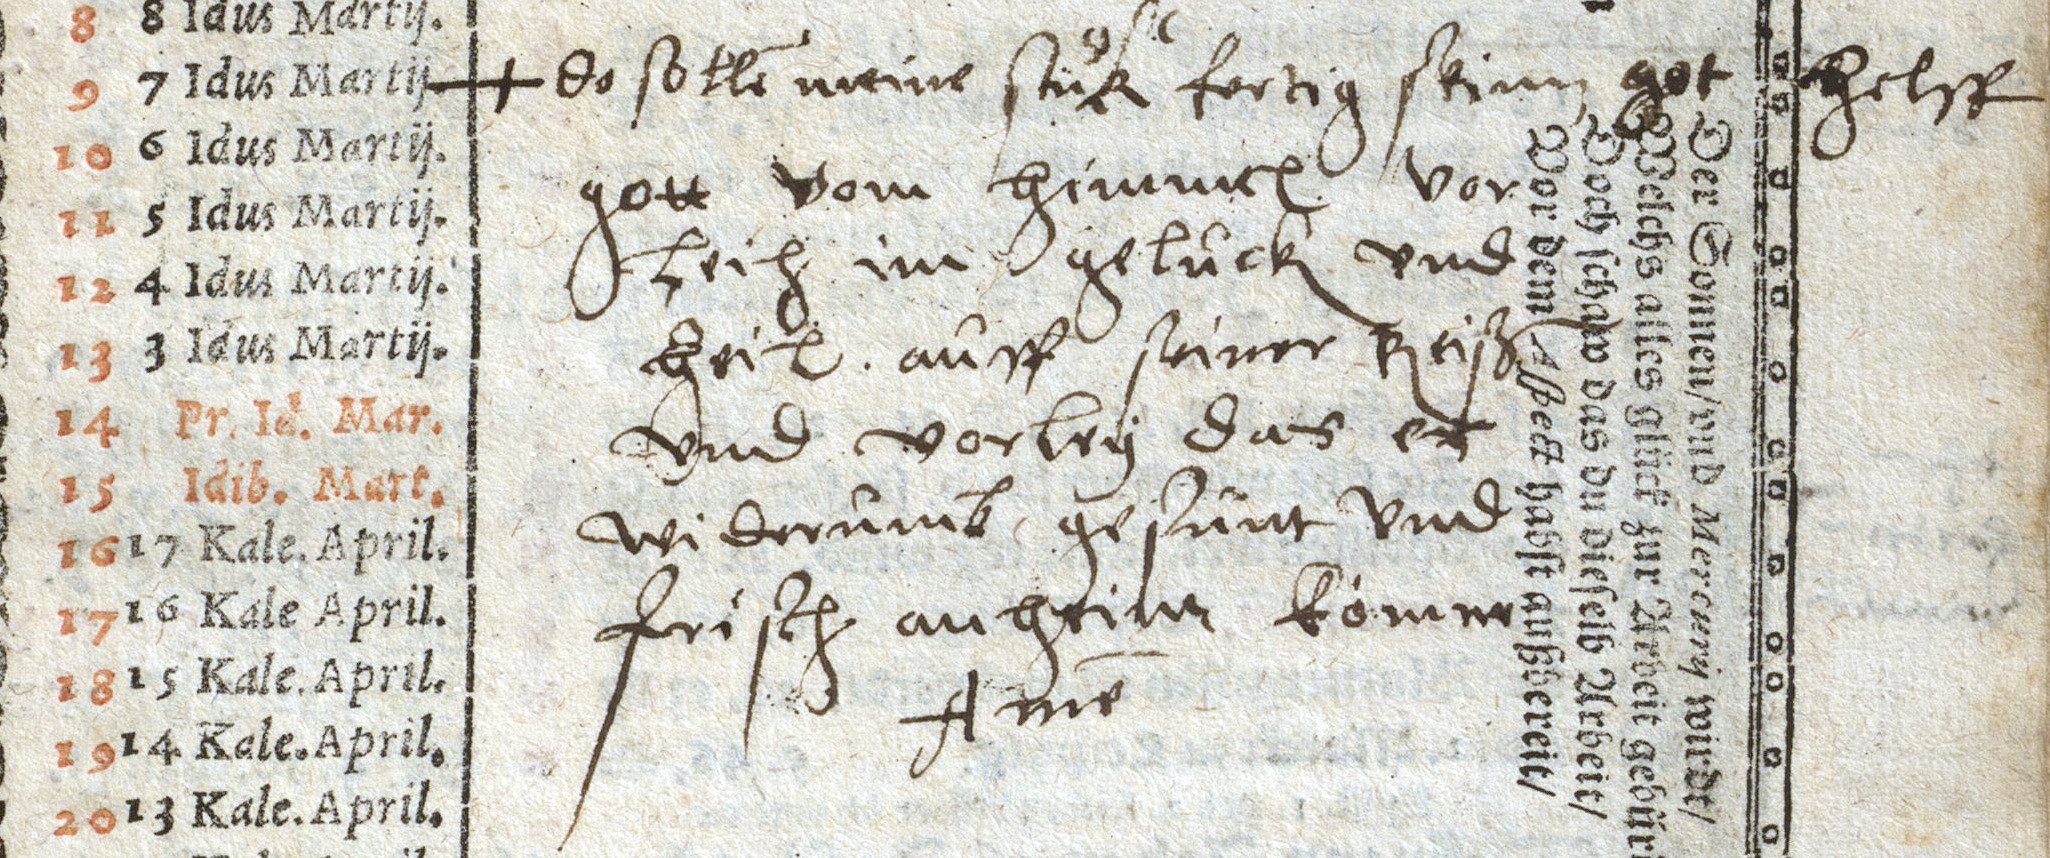 8 8 Idus Martij.
9 7 Idus Martij
10 6 Idus Martij.
11 5 Idus Martij.
12 4 Idus Martij.
13 3 Idus Martij.
14 Pr. Id. Mar.
15 Idib. Mart.
16 17 Kale. April.
17 16 Kale April.
18 15 Kale. April.
19 14 Kale. April.
20 13 Kale. April.
do sotlē meine stuck fertig seinn got helff
gott vom himmel vor
leich im geluck vnd
heil. auff seiner Reiß
vnd vorley das er
widerumb gesunt vnd
frisch anheim komme
Amē
Der Sonnen/vnd Mercurij wirdt/
Welchs alles glück zur Arbeit gebürt
Doch schaw das du dieselb Arbeit/
Vor dem Aspect habst außbereit/